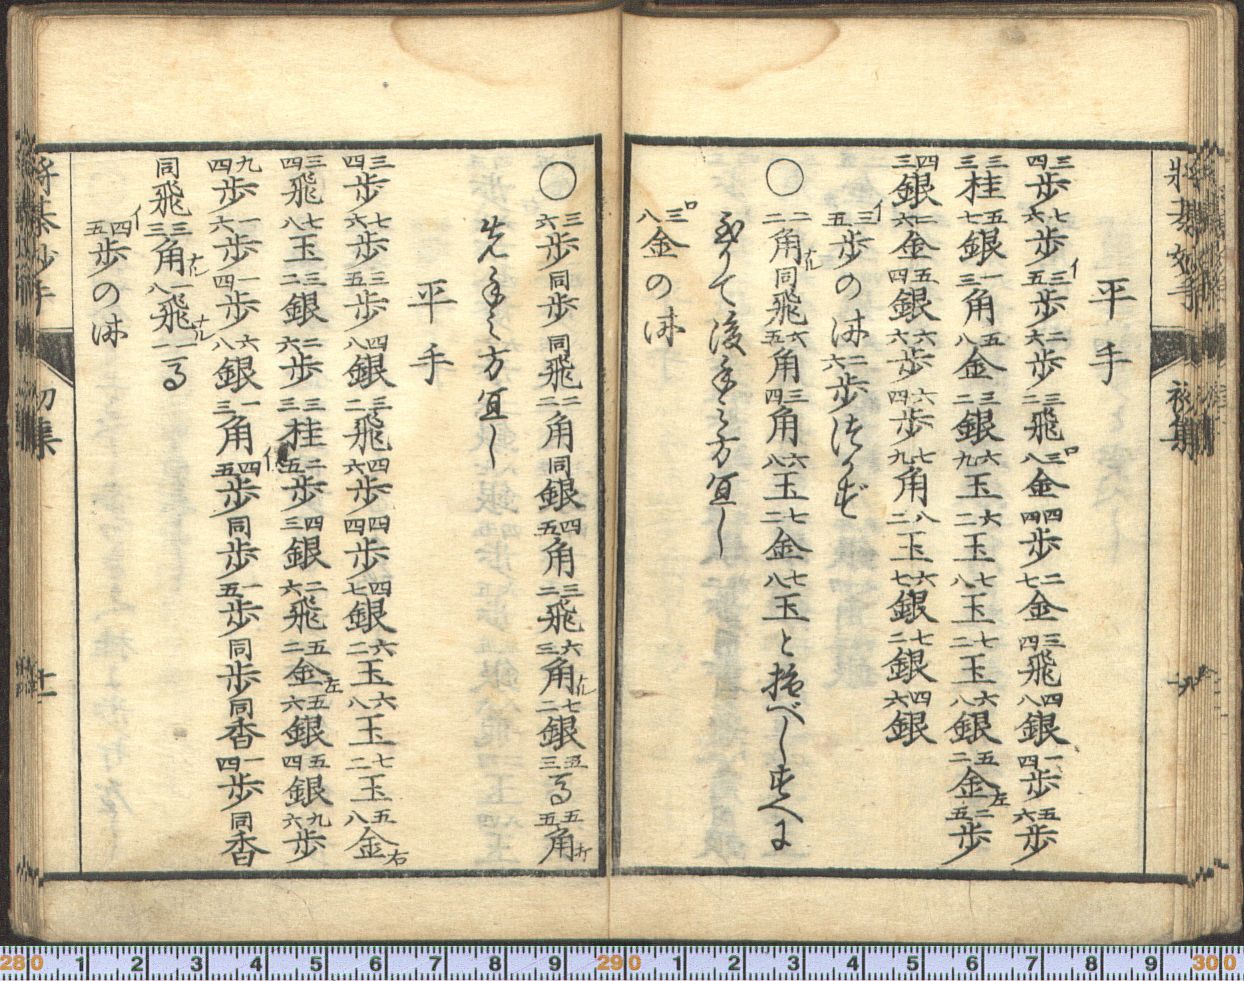 將棊妙手　初集　十九
平手
三四歩七六歩イ三五歩二六歩三二飛ロ三八金四四歩二七金三四飛四八銀一四歩五六歩
三三桂五七銀一三角五八金三二銀六九玉六二玉七八玉七二玉六八銀五二金左二五歩
四三銀二六金五四銀六六歩六四歩七九角八二玉六七銀七二銀四六銀
イ三五歩の时二六歩
〇二二角ナル同飛六五角三四角六八玉七二金七八玉と指べし
て後手之方宜し
ロ三八金の时
〇三六歩同歩同飛二二角同銀四五角三二飛六三角ナル七二銀五三馬五五角打
先手之方宜し
平手
三四歩七六歩三五歩四八銀三二飛四六歩四四歩四七銀六二玉六八玉七二玉五八金右
三四飛七八玉三二銀二六歩三三桂二五歩四三銀二六飛五二金左五六銀五四銀九六歩
九四歩一六歩一四歩六八銀一三角イ四五歩同歩一五歩同歩同香一四歩同香
同飛三三角ナル一八飛ナル一一馬
イ四五歩の时
將棊妙手　初集